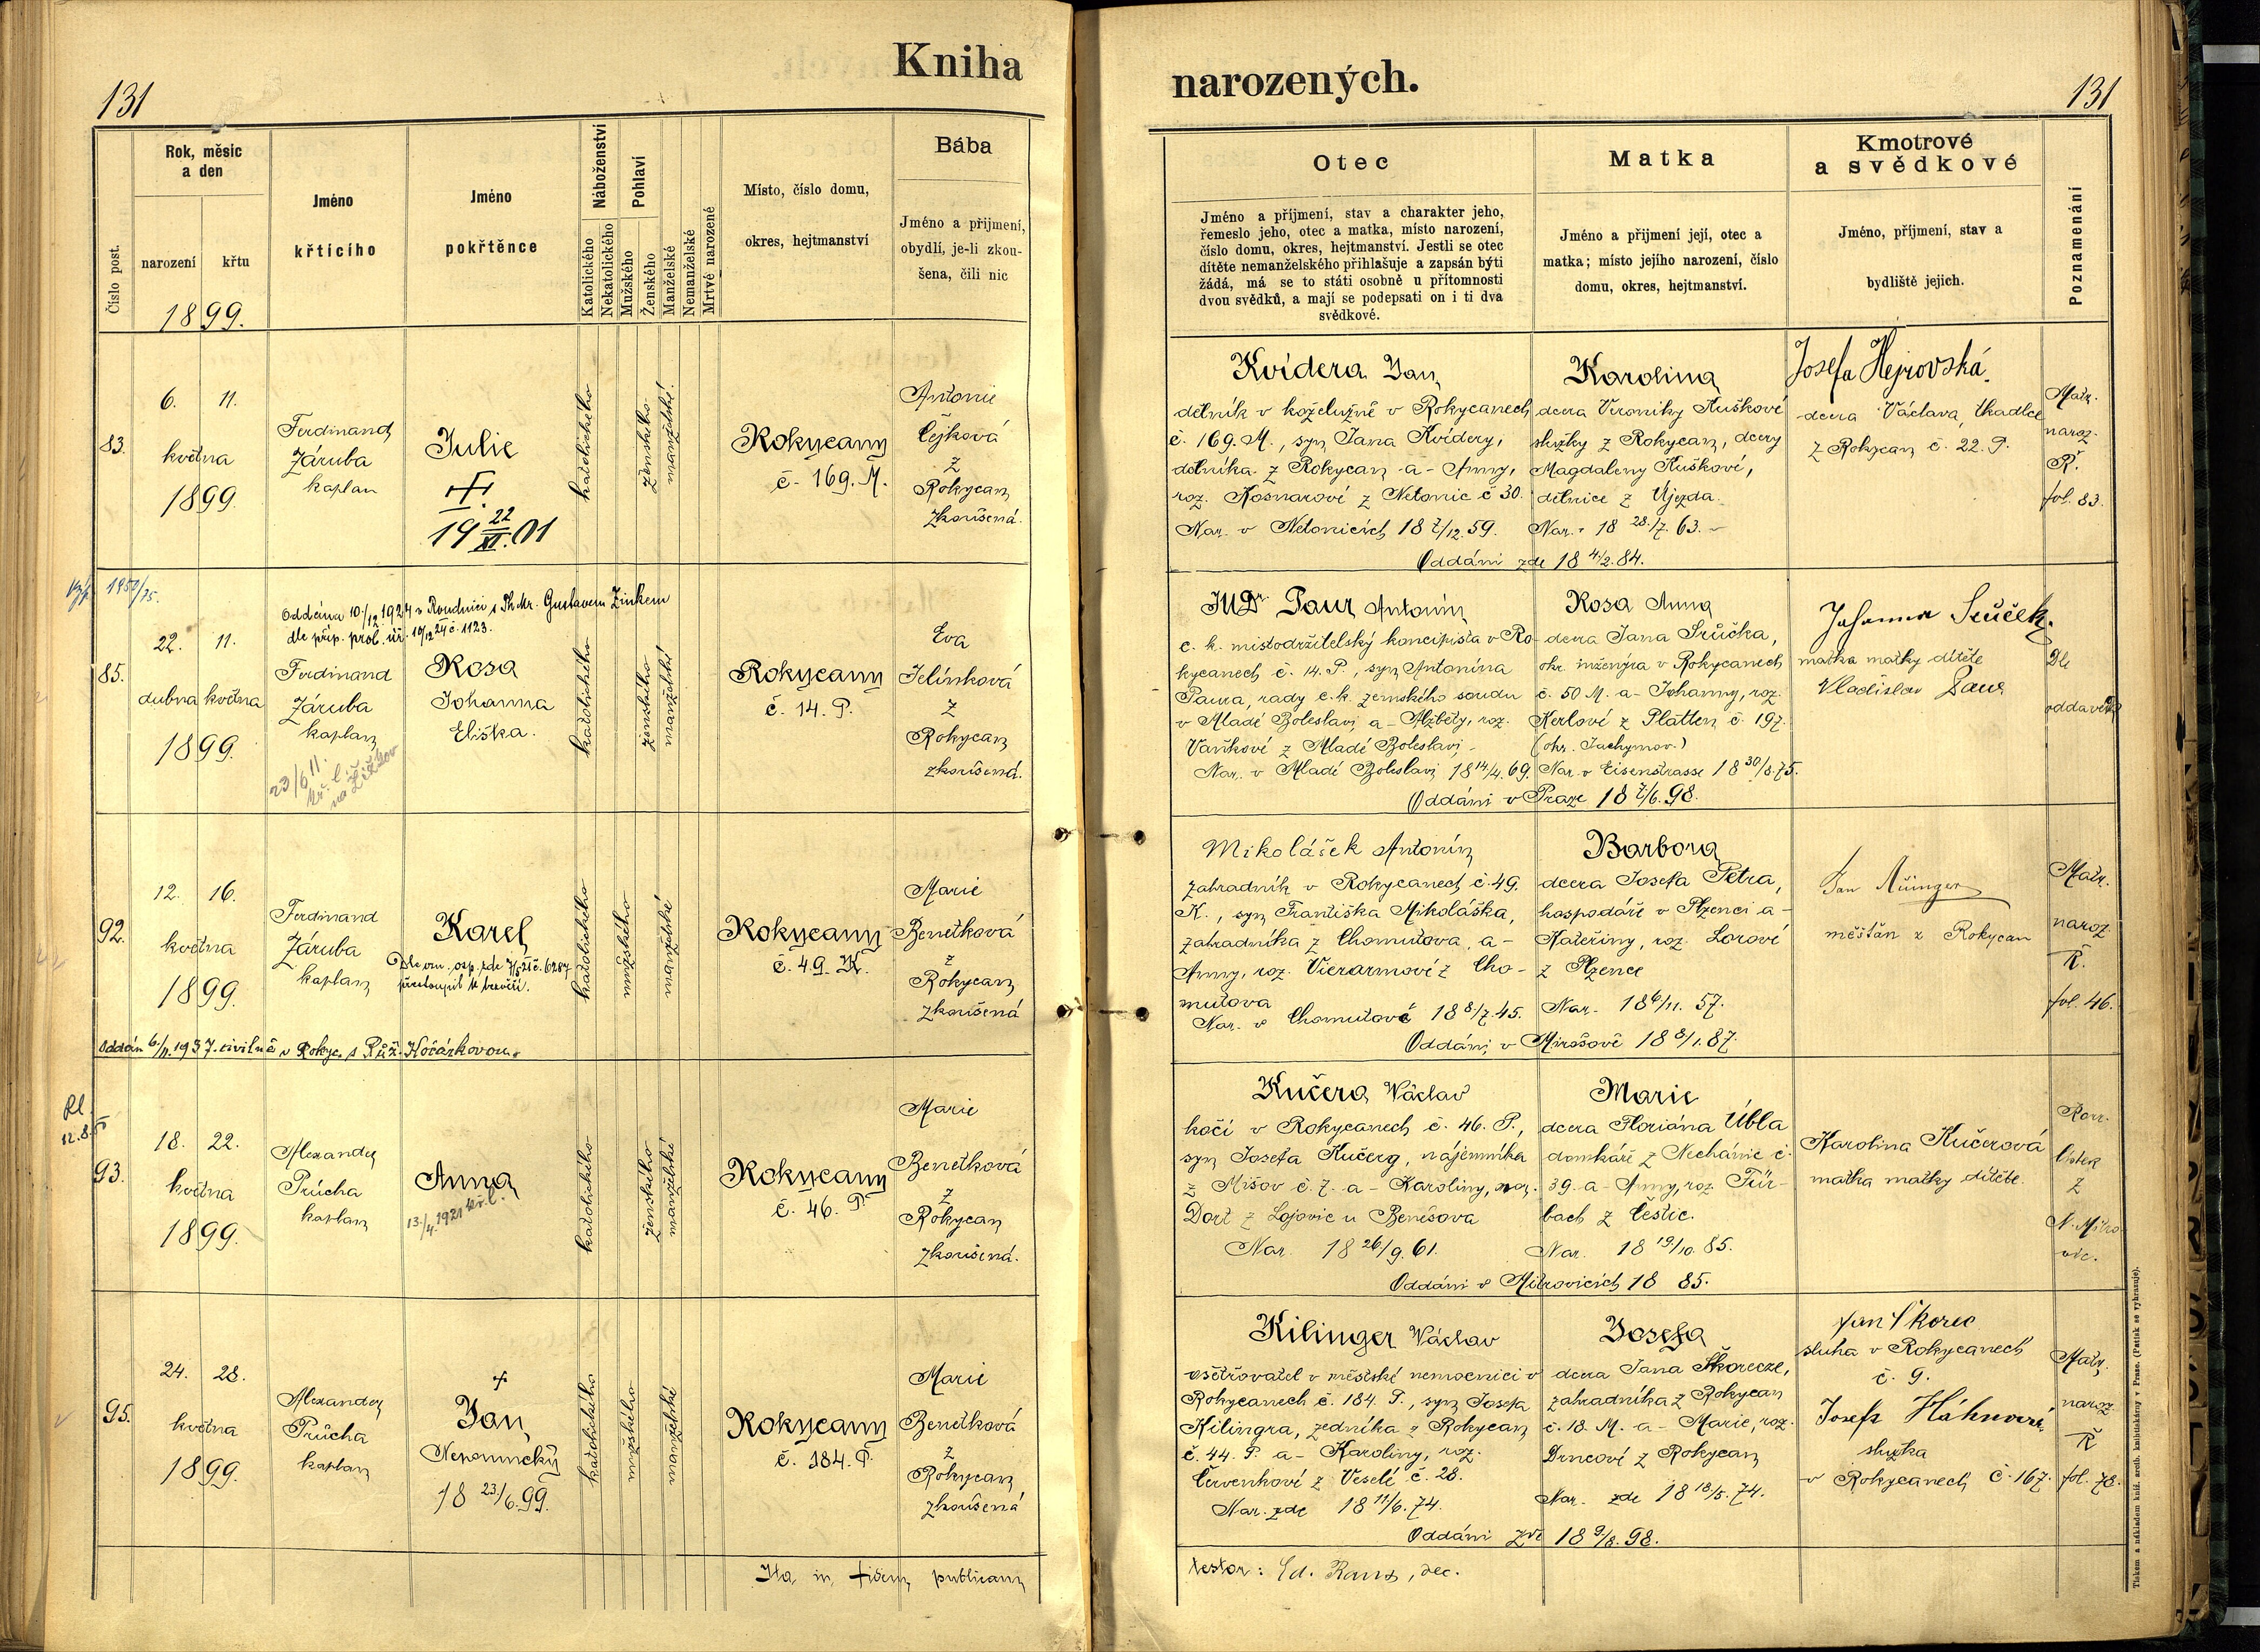 Kniha
narozených.
131
131
Číslo post.
Rok, měsíc
a den
narození
křtu
1899.
Jméno
křtícího
Jméno
pokřtěnce
Náboženství
Katolického
Nekatolického
Pohlaví
Mužského
Ženského
Manželské
Nemanželské
Mrtvé narozené
Místo, číslo domu,
okres, hejtmanství
Bába
Jméno a přijmení,
obydlí, je-li zkou-
šena, čili nic
Otec
Jméno a příjmení, stav a charakter jeho,
řemeslo jeho, otec a matka, místo narození,
číslo domu, okres, hejtmanství. Jestli se otec
dítěte nemanželského přihlašuje a zapsán býti
žádá, má se to státi osobně u přítomnosti
dvou svědků, a mají se podepsati on i ti dva
svědkové.
Matka
Jméno a přijmení její, otec a
matka; místo jejího narození, číslo
domu, okres, hejtmanství.
Kmotrové
a svědkové
Jméno, příjmení, stav a
bydliště jejich.
Poznamenání
83.
6. 11.
května
1899.
Ferdinand
Záruba
kaplan
Julie
19 22/XI. 01
katolického
ženského
manželské
Rokycany
č. 169. M.
Antonie
Čejková
z
Rokycan
zkoušená.
Kvídera Jan
dělník v koželužně v Rokycanech
č. 169. M., syn Jana Kvídery,
dělníka z Rokycan a Anny,
roz. Kosnarové z Netonic č 30.
Nar. v Netonicích 18 2/12. 59.
Karolina
dcera Veroniky Kuškové
služky z Rokycan, dcery
Magdaleny Kuškové,
dělnice z Újezda.
Nar. 18 28./7. 63.
Oddáni zde 18 4./2. 84.
Josefa Hejrovská.
dcera Václava, tkadlce
z Rokycan č. 22. P.
Matr.
naroz.
Ř.
fol. 83.
1950/75.
85.
22. 11.
dubna května
1899.
Oddána 10./12. 1924 v Roudnici s Ph Mr. Gustavem Zinkem
dle příp. prob. úř. 10/12 24 č. 1123.
Ferdinand
Záruba
kaplan
23/6 11.
kř. l.
na Žižkov
Rosa
Johanna
Eliška.
katolického
ženského
manželské
Rokycany
č. 14. P.
Eva
Jelínková
z
Rokycan
zkoušená.
JUDr. Paur Antonín
c. k. místodržitelský koncipista v Ro-
kycanech č. 14. P., syn Antonína
Paura, rady c. k. zemského soudu
v Mladé Boleslavi, a Alžběty, roz.
Vaňkové z Mladé Boleslavi
Nar. v Mladé Boleslavi 18 14/4. 69.
Rosa Anna
dcera Jana Srůčka,
okr. inženýra v Rokycanech
č. 50 M. a Johanny, roz.
Kerlové z Platten č. 197.
(okr. Jachymov.)
Nar. v Eisenstrasse 18 30/8. 75.
Oddáni v Praze 18 2/6. 98.
Johanna Srůček.
matka matky dítěte
Vladislav Paur
Dle
oddavek
92.
12. 16.
května
1899.
Ferdinand
Záruba
kaplan
Karel
katolického
mužského
manželské
Rokycany
č. 49. K.
Marie
Benetková
z
Rokycan
zkoušená
Oddán 6./11. 1937. civilně v Rokyc. s Růž. Hořánkovou.
Mikolášek Antonín
zahradník v Rokycanech č. 49.
K., syn Františka Mikoláška,
zahradníka z Chomutova, a
Anny, roz. Vierarmové z Cho-
mutova
Nar. v Chomutově 18 8/7. 45.
Barbora
dcera Josefa Petra,
hospodáře v Plzenci a
Kateřiny, roz. Lorové
z Plzence
Nar. 18 6/11. 57.
Oddáni v Mirošově 18 8/1. 87.
měšťan z Rokycan
Matr.
naroz.
Ř.
fol. 46.
93.
18. 22.
května
1899.
Alexander
Průcha
kaplan
Anna
13./4. 1921 kř. l.
katolického
ženského
manželské
Rokycany
č. 46. P.
Marie
Benetková
z
Rokycan
zkoušená.
Kučera Václav
kočí v Rokycanech č. 46. P.,
syn Josefa Kučery, nájemníka
z Mišov č. 7. a Karoliny, roz.
Dort z Lojovic u Benešova
Nar. 18 26/9. 61.
Marie
dcera Floriána Übla
domkáře z Nechánic č.
39. a Anny, roz. Für-
bach z Čestic.
Nar. 18 19./10. 85.
Oddáni v Mitrovicích 18 85.
Karolina Kučerová
matka matky dítěte.
N. Mitro-
vic.
95.
24. 28.
května
1899.
Alexander
Průcha
kaplan
Jan
Nepomucký
18 23/6. 99.
katolického
mužského
manželské
Rokycany
č. 184. P.
Marie
Benetková
z
Rokycan
zkoušená
Kilinger Václav
ošetřovatel v městské nemocnici v
Rokycanech č. 184. P., syn Josefa
Kilingra, zedníka z Rokycan
č. 44. P. a Karoliny, roz.
Červenkové z Veselé č. 28.
Nar. zde 18 11/6. 74.
Josefa
dcera Jana Škorecze,
zahradníka z Rokycan
č. 18. M. a Marie, roz.
Drncové z Rokycan
Nar. zde 18 18/5. 74.
Oddáni zde 18 9/8. 98.
Jan Škorec
sluha v Rokycanech
č. 9.
služka
v Rokycanech č. 167.
Matr.
naroz.
Ř
fol. 78.
Ita in fidem publicam
testor: Ed. Rams, dec.
Tiskem a nákladem kníž. arcib. knihtiskárny v Praze. (Patisk se vyhrazuje).